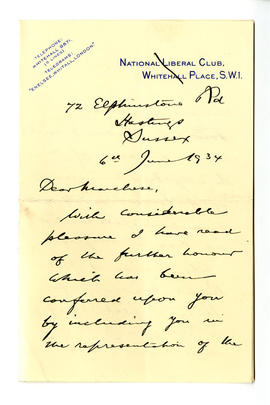 TELEPHONE:
WHITEHALL
TELEGRAMS:
NATIONAL LIBERAL CLUB,
WHITEHALL PLACE, S.W.1.
72 Elphinstone Rd
Hastings
Sussex
6th June 1934
Dear Marchese,
With considerable
pleasure I have read
of the further honour
which has been
conferred upon you
by including you in
the representation of the